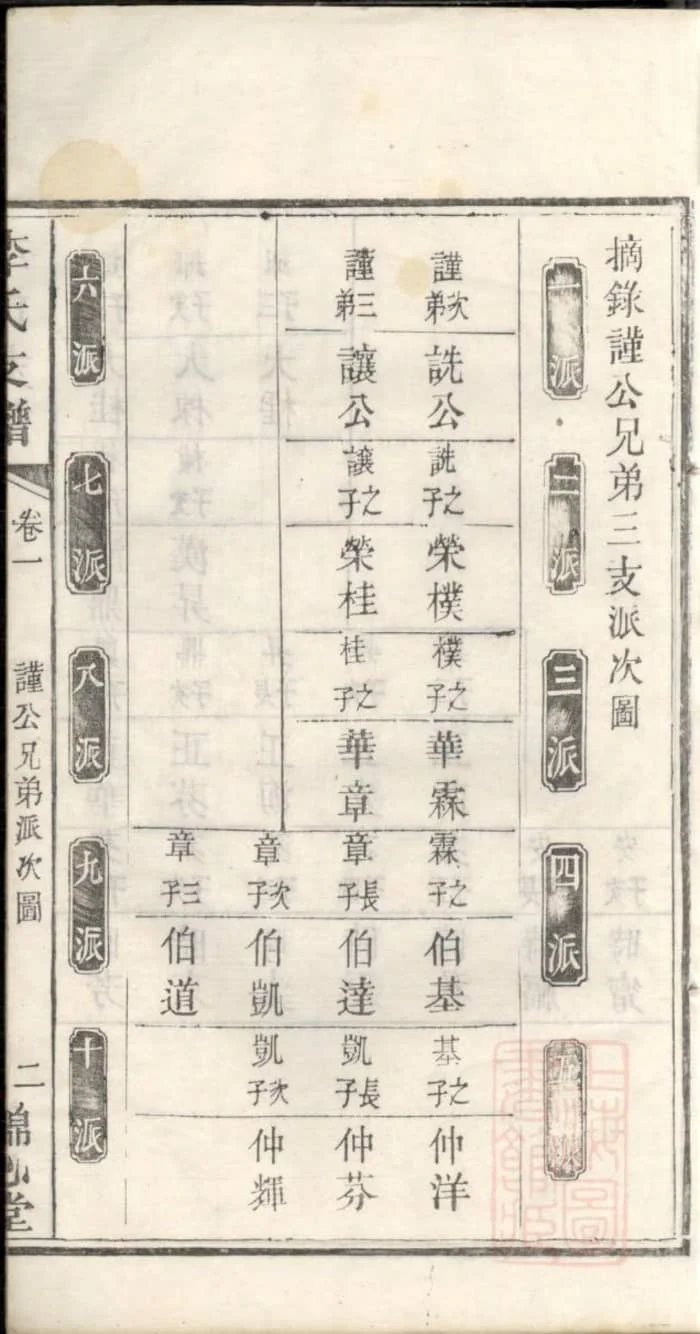 摘錄謹公兄弟三支派次圖
一派 二派 三派 四派 五派
謹次弟 詵公 詵之子 榮樸 樸之子 華霖 霖之子 伯基 基之子 仲洋
謹三弟 讓公 讓之子 榮桂 桂之子 華章 章長子 伯達 凱長子 仲芬
章次子 伯凱 凱次子 仲輝
章三子 伯道
六派 七派 八派 九派 十派
李氏支譜 卷一 謹公兄弟派次圖 二